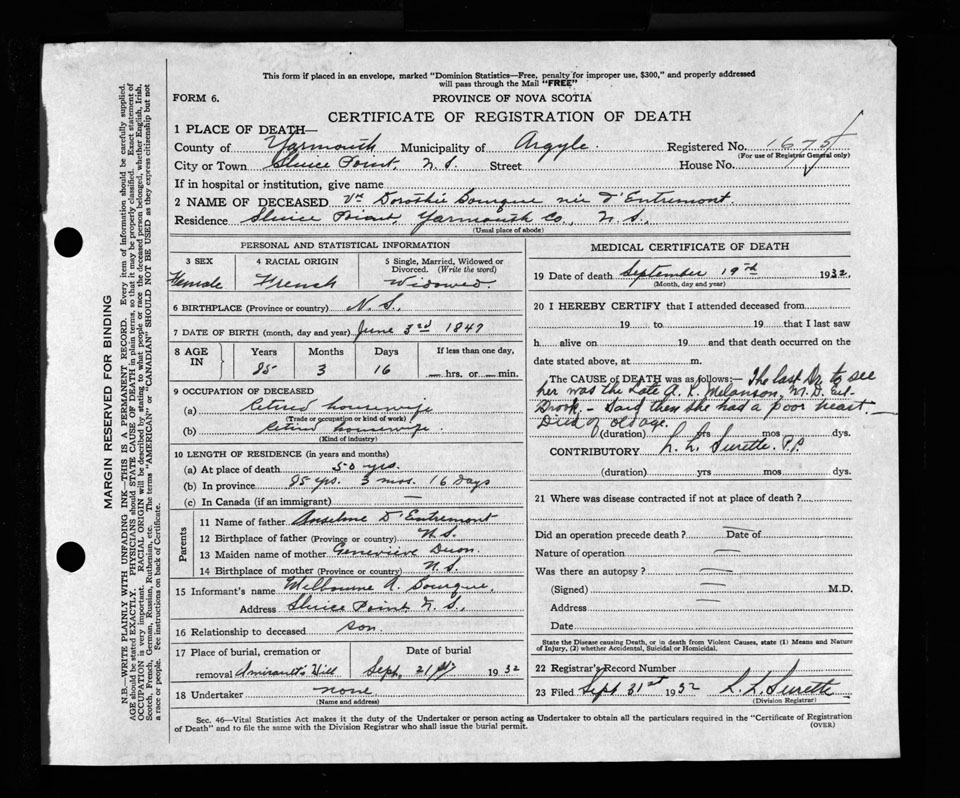 This form if placed in an envelope, marked "Dominion Statistics—Free, penalty for improper use, $300," and properly addressed
will pass through the Mail "FREE"
FORM 6.
PROVINCE OF NOVA SCOTIA
CERTIFICATE OF REGISTRATION OF DEATH
1 PLACE OF DEATH—
County of Yarmouth Municipality of Argyle. Registered No. 1675
(For use of Registrar General only)
City or Town Sluice Point, N.S. Street House No.
If in hospital or institution, give name
2 NAME OF DECEASED Dorothie Bourque née D'Entremont
Residence Sluice Point, Yarmouth Co., N.S.,
(Usual place of abode)
PERSONAL AND STATISTICAL INFORMATION
3 SEX
Female
4 RACIAL ORIGIN
French
5 Single, Married, Widowed or
Divorced. (Write the word)
Widowed
6 BIRTHPLACE (Province or country) N.S.,
7 DATE OF BIRTH (month, day and year) June 3rd 1847
8 AGE IN
Years Months Days If less than one day,
85 3 16 hrs. or min.
9 OCCUPATION OF DECEASED
(a) Retired housewife
(Trade or occupation or kind of work)
(b) Retired housewife.
(Kind of industry)
10 LENGTH OF RESIDENCE (in years and months)
(a) At place of death 50 yrs.
(b) In province 85 yrs. 3 mos. 16 Days
(c) In Canada (if an immigrant) —
Parents
11 Name of father Anselme D'Entremont
12 Birthplace of father (Province or country) N.S.
13 Maiden name of mother Genevieve
14 Birthplace of mother (Province or country) N.S.
15 Informant's name Welbourne A. Bourque,
Address Sluice Point N.S.,
16 Relationship to deceased son.
17 Place of burial, cremation or Date of burial
removal Amirault's Hill Sept, 21st 1932
18 Undertaker none
(Name and address)
MEDICAL CERTIFICATE OF DEATH
19 Date of death September 19th 1932.
(Month, day and year)
20 I HEREBY CERTIFY that I attended deceased from
19 to 19 that I last saw
h alive on 19 and that death occurred on the
date stated above, at m.
The CAUSE OF DEATH was as follows:— The last Dr to see
her was the Late A. K. Melanson, M.D. Eel
Brook – Said then she had a poor heart.
Died of old age.
(duration) yrs mos dys.
CONTRIBUTORY L. L. Surette,
(duration) yrs mos. dys.
21 Where was disease contracted if not at place of death?
Did an operation precede death? — Date of —
Nature of operation —
Was there an autopsy? —
(Signed) — M.D.
Address —
Date
State the Disease causing Death, or in death from Violent Causes, state (1) Means and Nature
of Injury, (2) whether Accidental, Suicidal or Homicidal.
22 Registrar's Record Number
23 Filed Sept 31st 1932 L. L. Surette
(Division Registrar)
Sec. 46—Vital Statistics Act makes it the duty of the Undertaker or person acting as Undertaker to obtain all the particulars required in the "Certificate of Registration
of Death" and to file the same with the Division Registrar who shall issue the burial permit. (OVER)
MARGIN RESERVED FOR BINDING
N.B.—WRITE PLAINLY WITH UNFADING INK—THIS IS A PERMANENT RECORD. Every item of information should be carefully supplied.
AGE should be stated EXACTLY. PHYSICIANS should STATE CAUSE OF DEATH in plain terms, so that it may be properly classified. Exact statement of
OCCUPATION is very important. RACIAL ORIGIN will be described by stating to what people or race the deceased person belonged, whether English, Irish,
Scotch, French, German, Russian, Ruthenian, etc. The terms "AMERICAN" or "CANADIAN" SHOULD NOT BE USED as they express citizenship but not
a race or people. See instructions on back of Certificate.